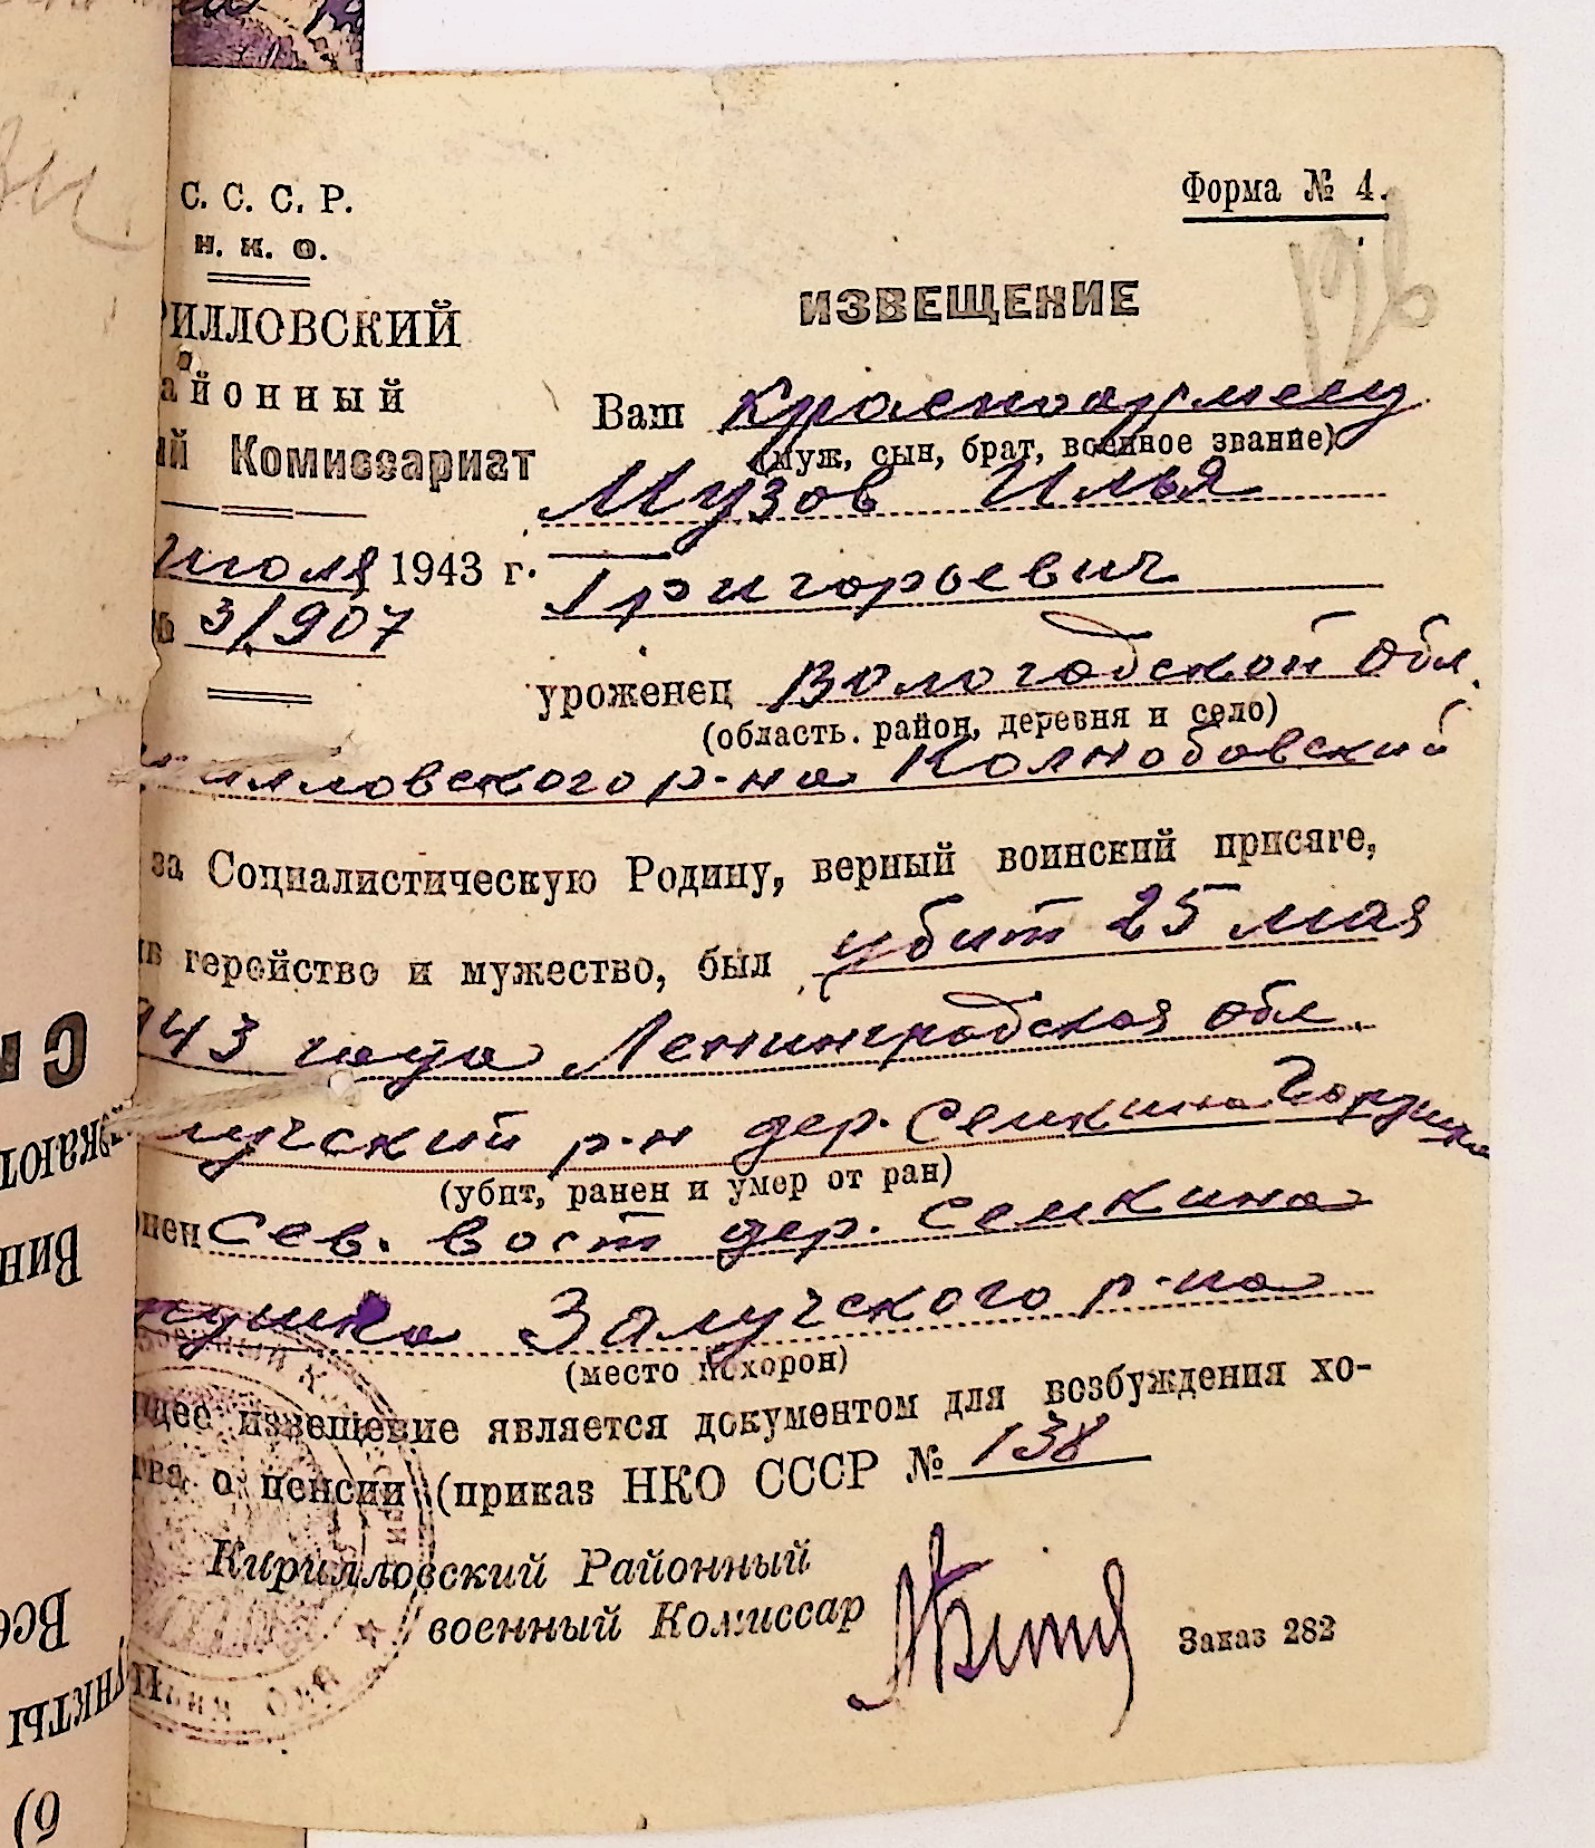 С. С. С. Р.
Н. К. О.
РИЛЛОВСКИЙ
айонный
ий Комиссариат
июля 1943 г.
№ 3/907
Форма № 4.
ИЗВЕЩЕНИЕ
Ваш красноармеец
(муж, сын, брат, военное звание)
Музов Илья
Григорьевич
уроженец Вологодской обл.
(область, район, деревня и село)
илловского р-на Колнобовский
за Социалистическую Родину, верный воинский присяге,
ив геройство и мужество, был убит 25 мая
943 года Ленинградская обл.
лучский р-н дер. Семкина Горушка
(убит, ранен и умер от ран)
онен Сев. вост дер. Семкина
рушка Залучского р-на
(место похорон)
щее извещение является документом для возбуждения хо-
тва о пенсии (приказ НКО СССР № 138
Кирилловский Районный
военный Комиссар
Заказ 282